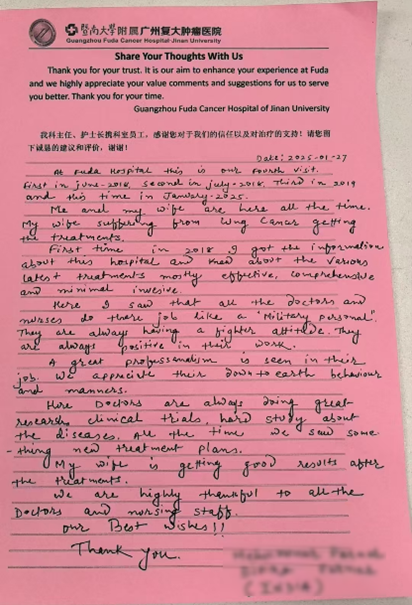 暨南大學附属广州复大肿瘤医院
Guangzhou Fuda Cancer Hospital·Jinan University
Share Your Thoughts With Us
Thank you for your trust. It is our aim to enhance your experience at Fuda
and we highly appreciate your value comments and suggestions for us to serve
you better. Thank you for your time.
Guangzhou Fuda Cancer Hospital of Jinan University
我科主任、护士长携科室员工，感谢您对于我们的信任以及对治疗的支持！请您留
下诚恳的建议和评价，谢谢！
Date: 2025-01-27
At Fuda Hospital this is our fourth visit.
First in june-2018, second in july-2018, Third in 2019
and this time in January-2025.
Me and my wife are here all the time.
My wife suffering from Lung Cancer getting
the treatments.
First time in 2018 I got the information
about this hospital and knew about the various
latest treatments mostly effective, comprehensive
and minimal invesive.
Here I saw that all the doctors and
nurses do there job like a "Military personal".
They are always having a fighter attitude. They
are always positive in their work.
A great professanalism is seen in their
job. We appreciete their down to earth behaviour
and manners.
Here Doctors are always doing great
research, clinical trials, hard study about
the diseases. All the time we saw some
-thing new treatment plans.
My wife is getting good results after
the treatments.
We are highly thankful to all the
Doctors and nursing staff.
Our Best wishes!!
Thank you.
(India)